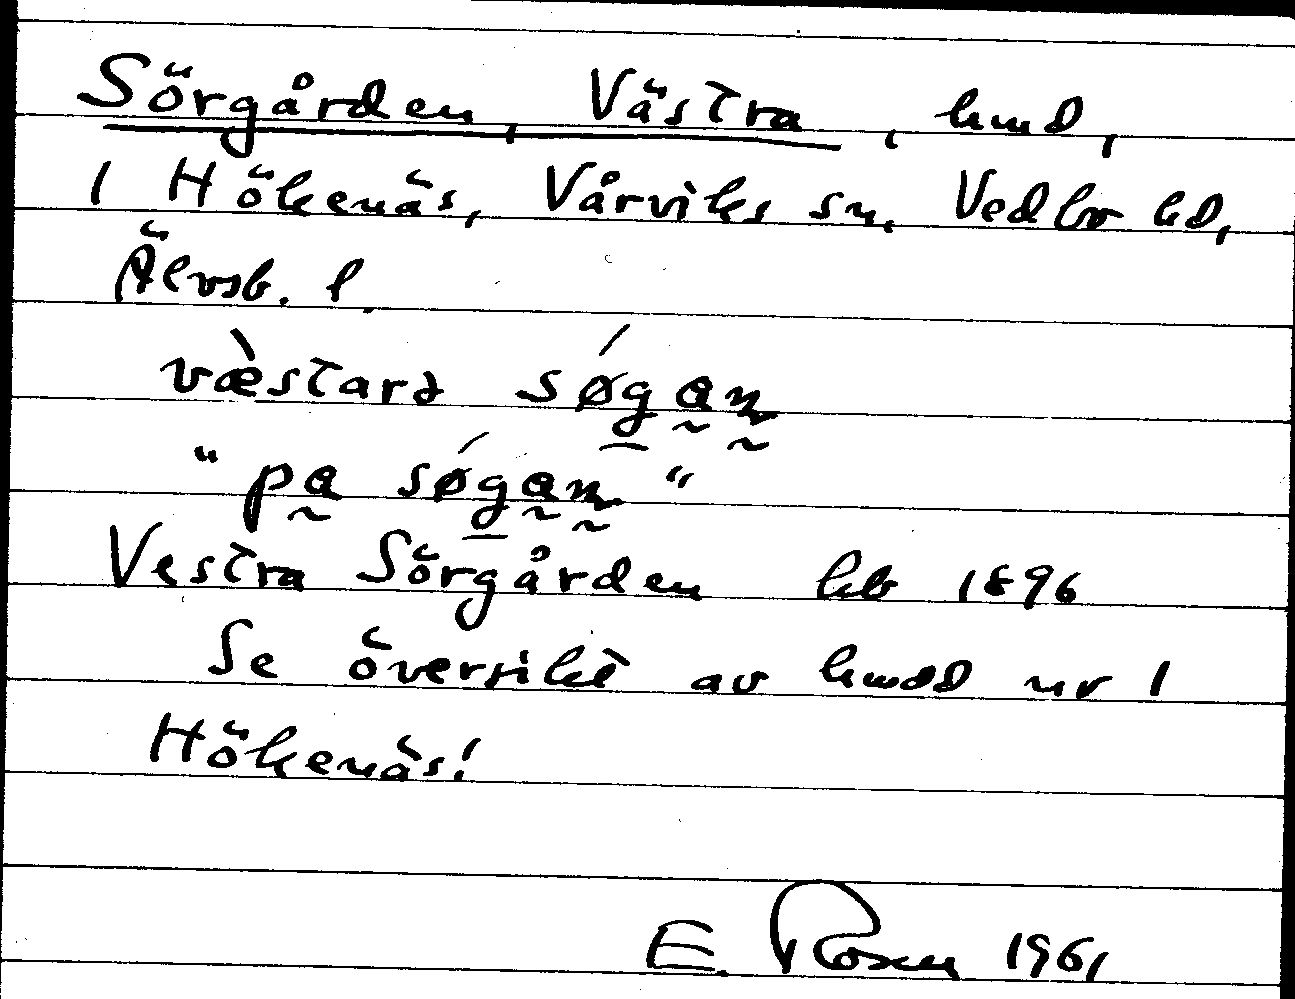 Sörgården, Västra, hmd,
1 Hökenäs, Vårviks sn, Vedbo hd,
Älvsb. l.
væ̀starə sǿgan
"pa sǿgan"
Vestra Sörgården hb 1896
Se översikt av hmdd nr 1
Hökenäs!
E. Rosen 1961